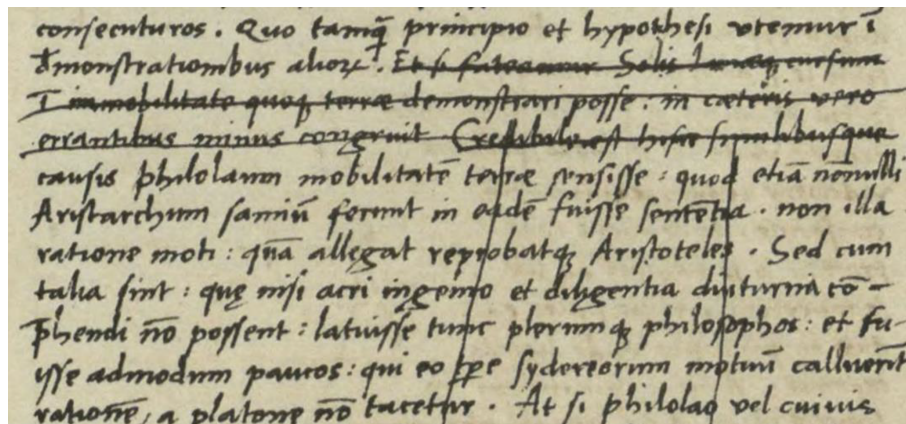 consecuturos. Quo tamq̄ principio et hypothesi vtemur ī
d̄monstrationibus alioꝝ. Et si fateamur Solis lunæqꝫ cursum
ī immobilitate quoqꝫ terræ demonstrari posse. in cæteris vero
errantibus minus congruit Credibile est hisce similibusque
causis philolaum mobilitatē terræ sensisse: quod etiā nōnulli
Aristarchum samiū ferunt in eadē fuisse sentētia. non illa
ratione moti: quā allegat reprobatqꝫ Aristoteles. Sed cum
talia sint: quę nisi acri ingenio et diligentia diuturna cō-
p̄hendi nō possent: latuisse tunc plerumqꝫ philosophos: et fu-
isse admodum paucos: qui eo tp̄e sydereorum motuū calluerīt
rationē, a platone nō tacetur. At si philolao vel cuiuis